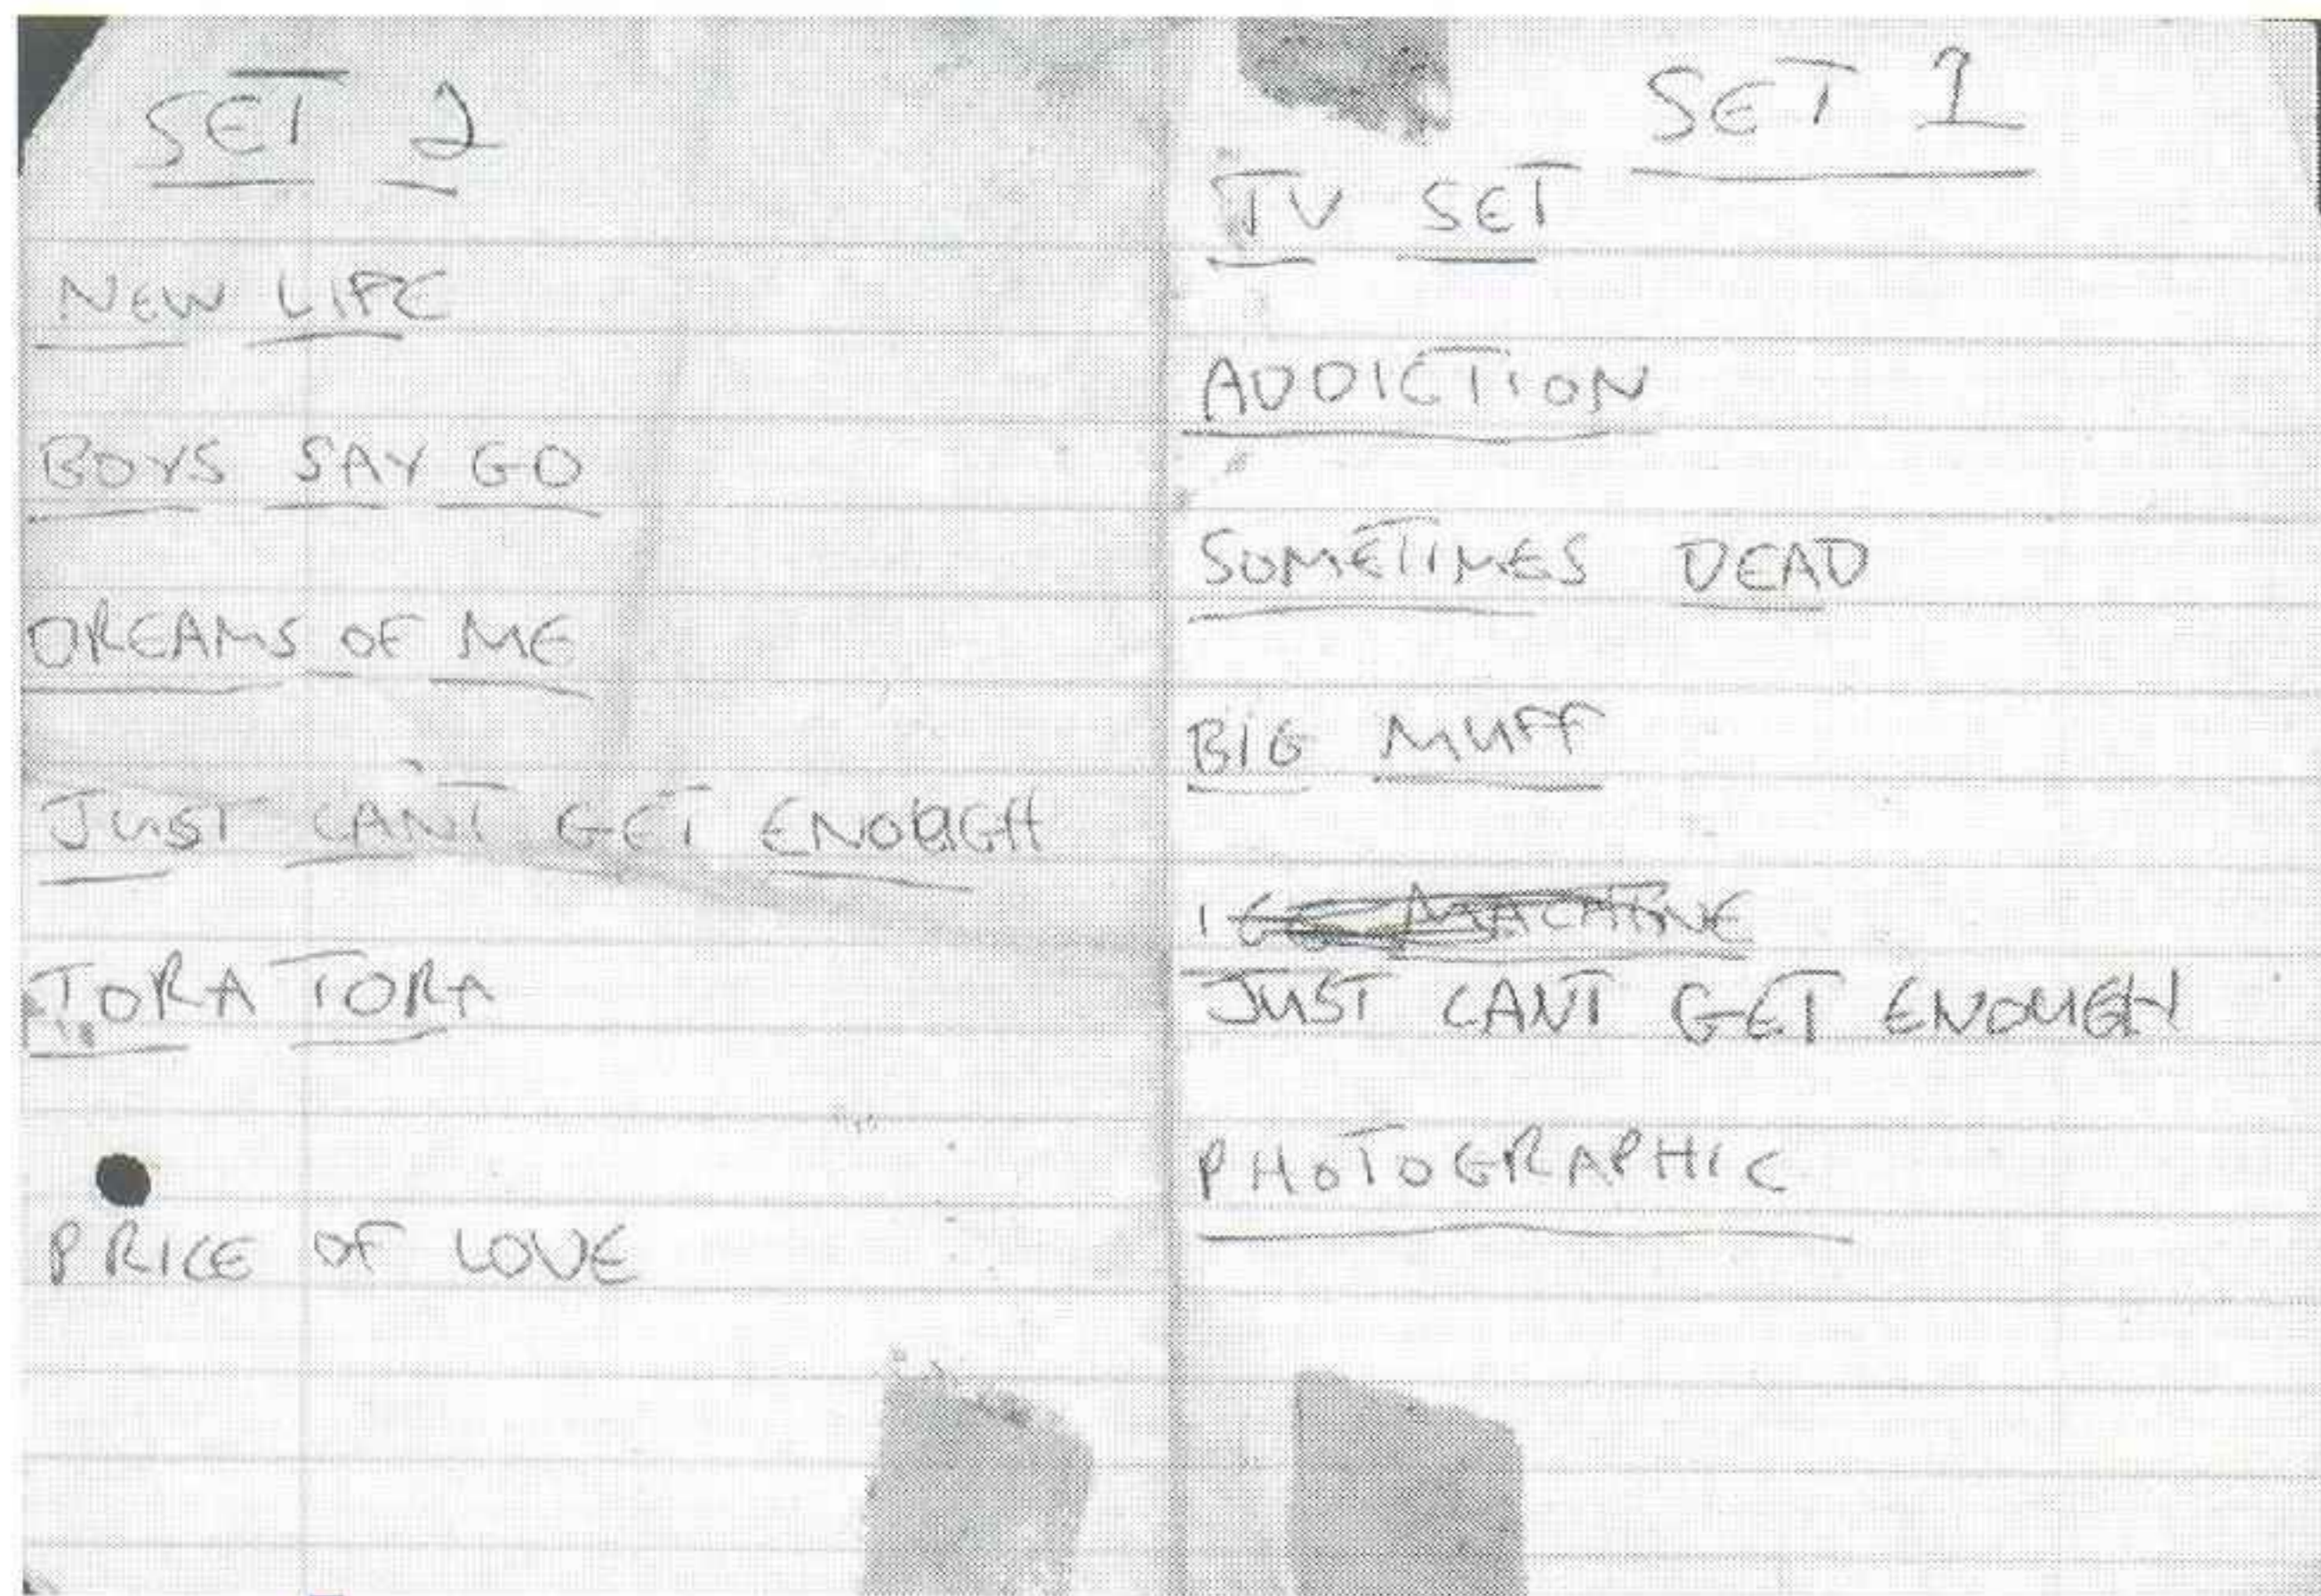 SET 2
NEW LIFE
BOYS SAY GO
DREAMS OF ME
JUST CAN'T GET ENOUGH
TORA TORA
PRICE OF LOVE
SET 1
TV SET
ADDICTION
SOMETIMES DEAD
BIG MUFF
MACHINE
JUST CANT GET ENOUGH
PHOTOGRAPHIC